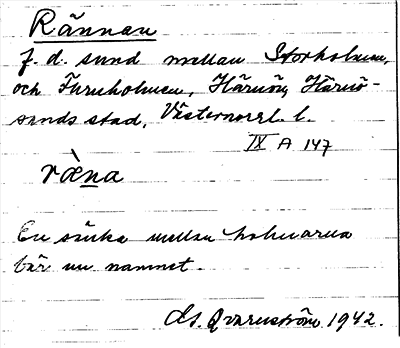 Rännan
f. d. sund mellan Storholmen,
och Furuholmen, Härnön, Härnö-
sands stad, Västernorrl. l.
IX A 147
ræ̀na
En sänka mellan holmarna
bär nu namnet.
M. Qvarnström 1942.